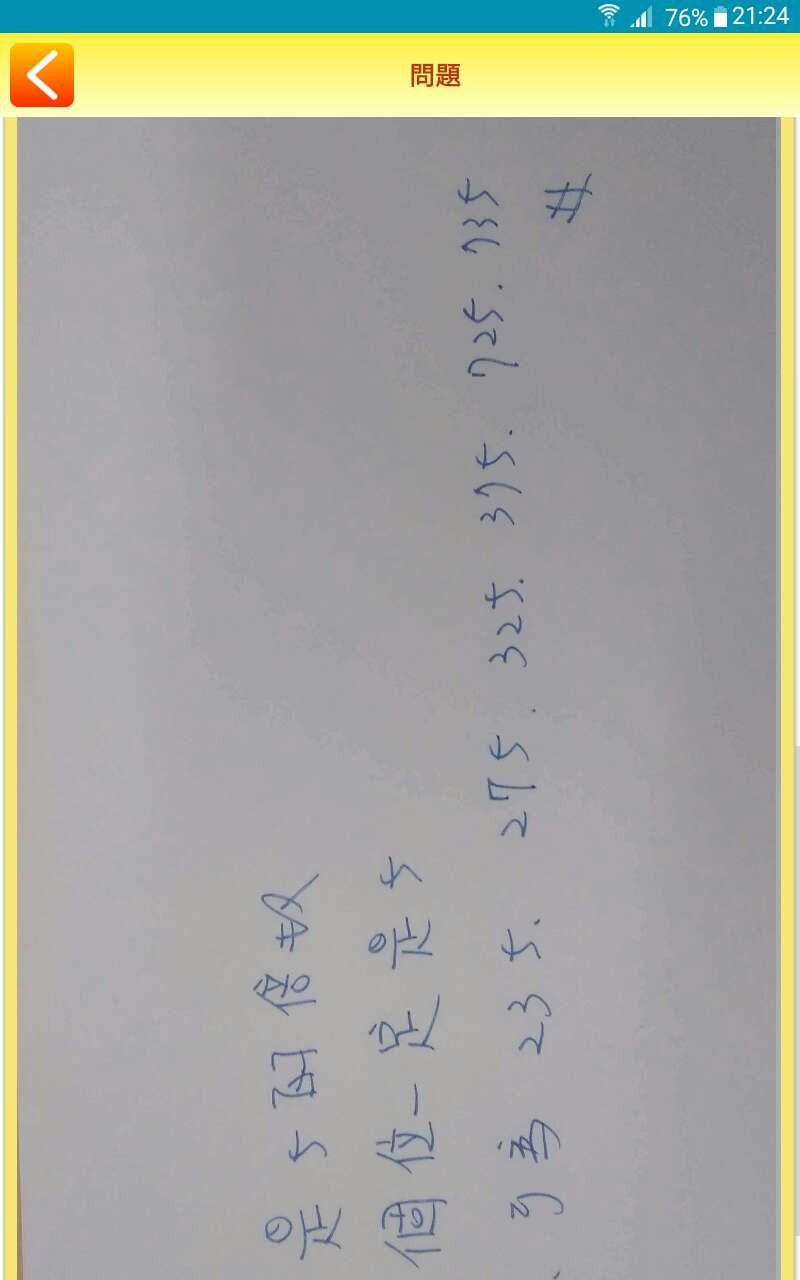 76% 21:24
問題
是5的倍数
個位一定是5
可為 235. 275. 325. 375. 725. 735
#